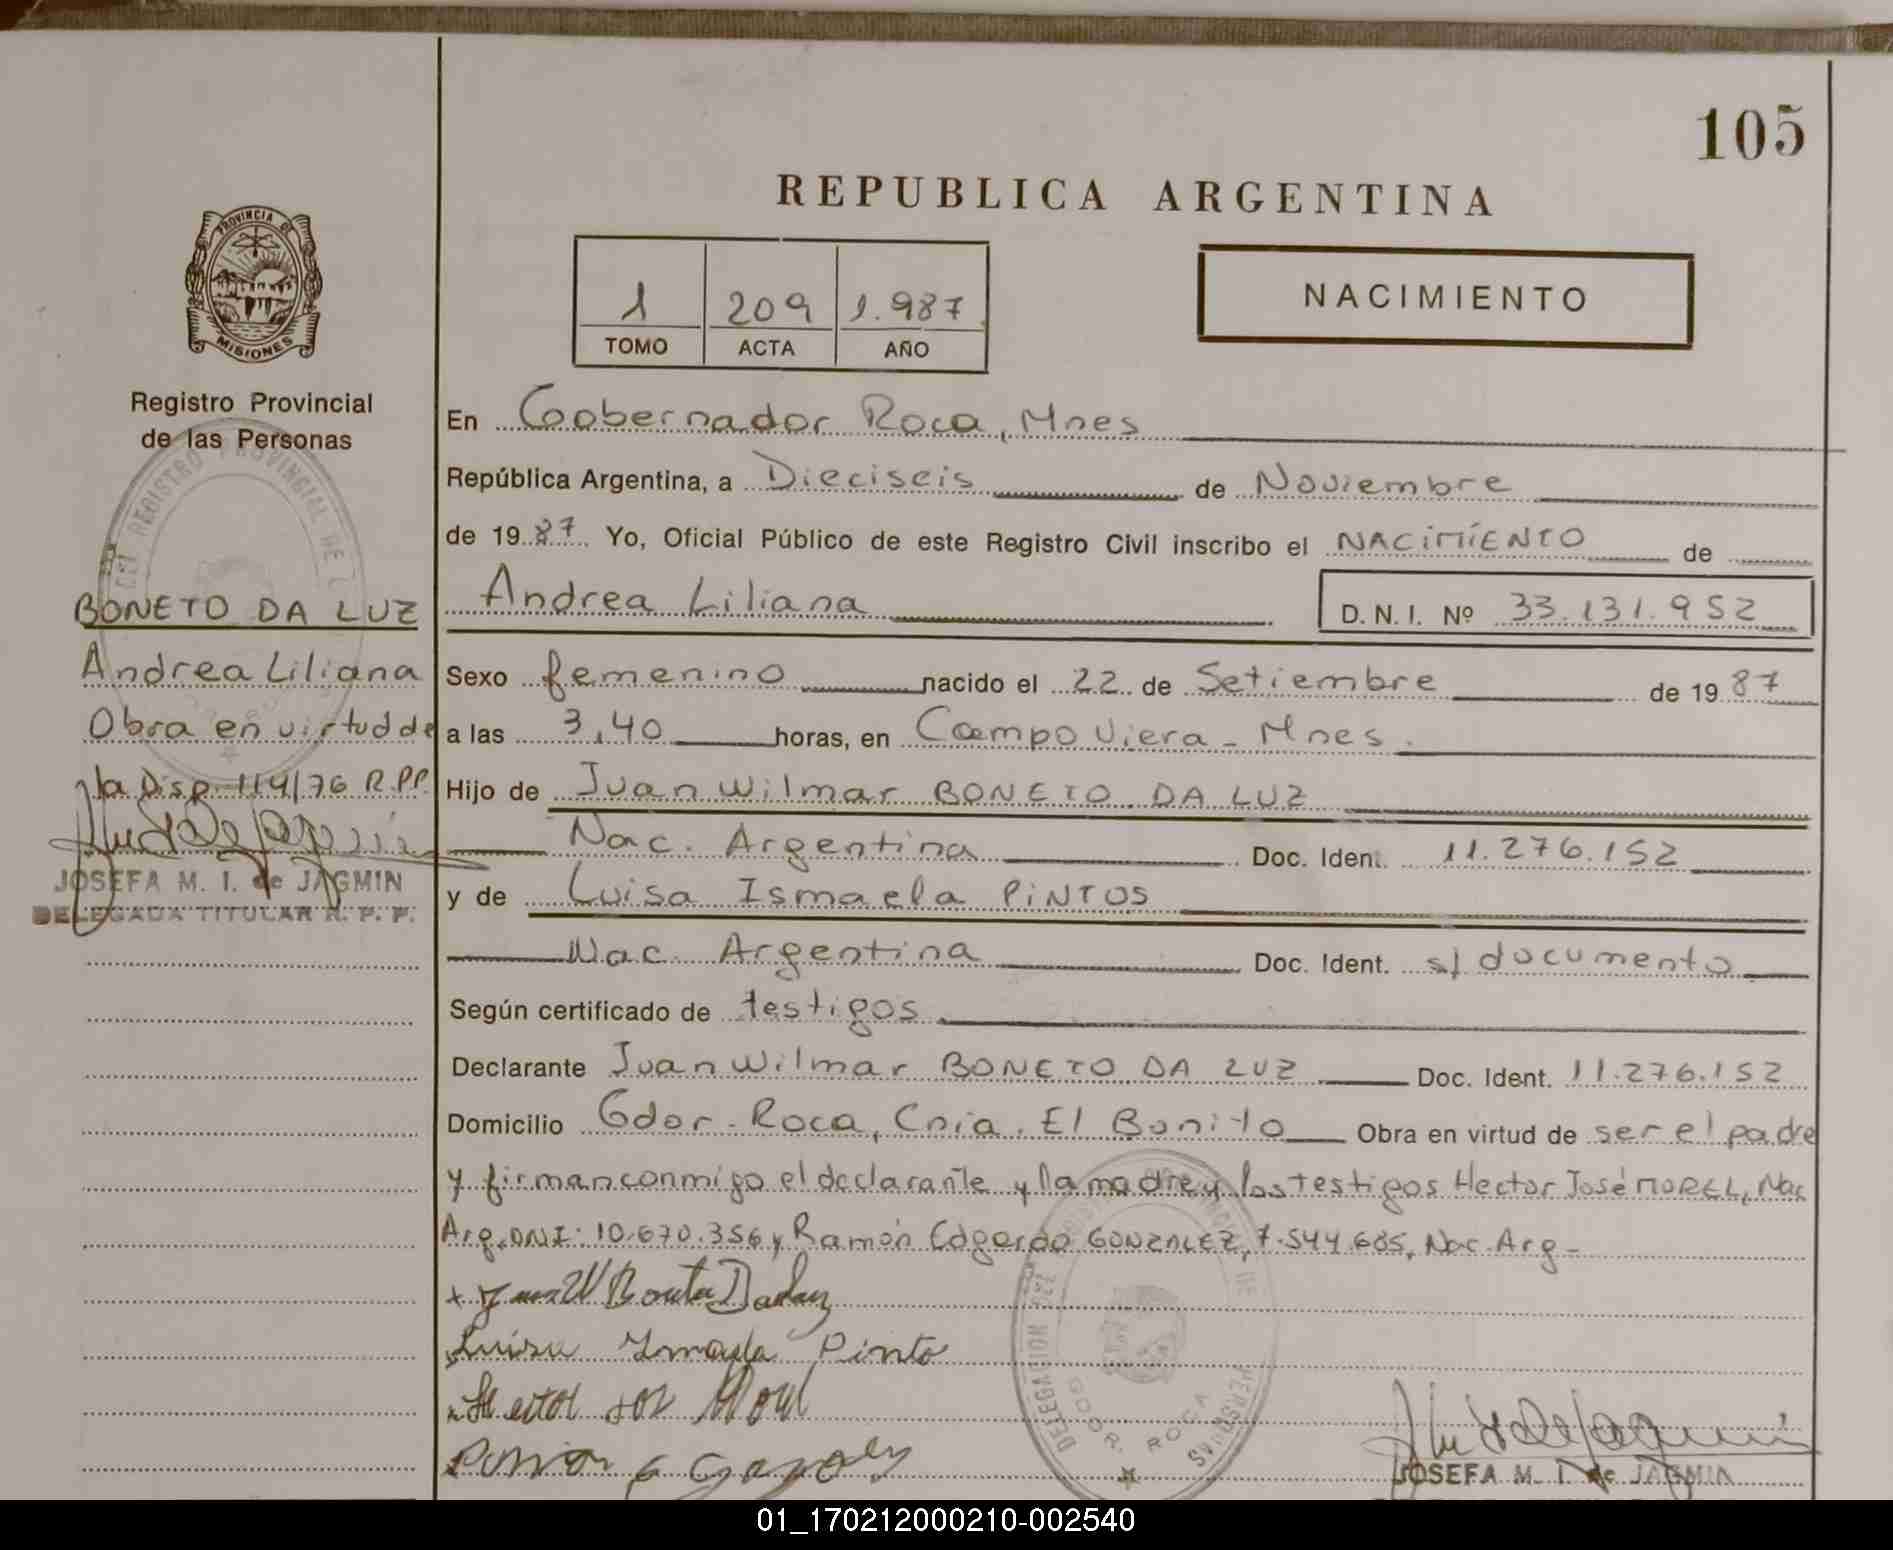 105
REPUBLICA ARGENTINA
PROVINCIA DE
MISIONES
1 209 1.987
TOMO ACTA AÑO
NACIMIENTO
Registro Provincial
de las Personas
BONETO DA LUZ
Andrea Liliana
Obra en virtud de
la Disp. 114/76 R.P.P.
JOSEFA M. I. de JAGMIN
DELEGADA TITULAR R. P. P.
En Gobernador Roca, Mnes
República Argentina, a Dieciseis de Noviembre
de 1987 Yo, Oficial Público de este Registro Civil inscribo el NACIMIENTO de
Andrea Liliana D. N. I. Nº 33.131.952
Sexo femenino nacido el 22 de Setiembre de 1987
a las 3,40 horas, en Campo Viera - Mnes.
Hijo de Juan Wilmar BONETO DA LUZ
Nac. Argentina Doc. Ident. 11.276.152
y de Luisa Ismaela PINTOS
Nac. Argentina Doc. Ident. s/ documento
Según certificado de testigos
Declarante Juan Wilmar BONETO DA LUZ Doc. Ident. 11.276.152
Domicilio Gdor. Roca, Cnia. El Bonito Obra en virtud de ser el padre
y firman conmigo el declarante y la madre y los testigos Hector José MOREL, Nac
Arg. DNI: 10.670.356 y Ramón Edgardo GONZALEZ, 7.544.685, Nac. Arg-
Luisa Ismaela Pinto
DELEGACION DEL REGISTRO PROVINCIAL DE PERSONAS
GDOR. ROCA
JOSEFA M. I. de JAGMIN
01_170212000210-002540